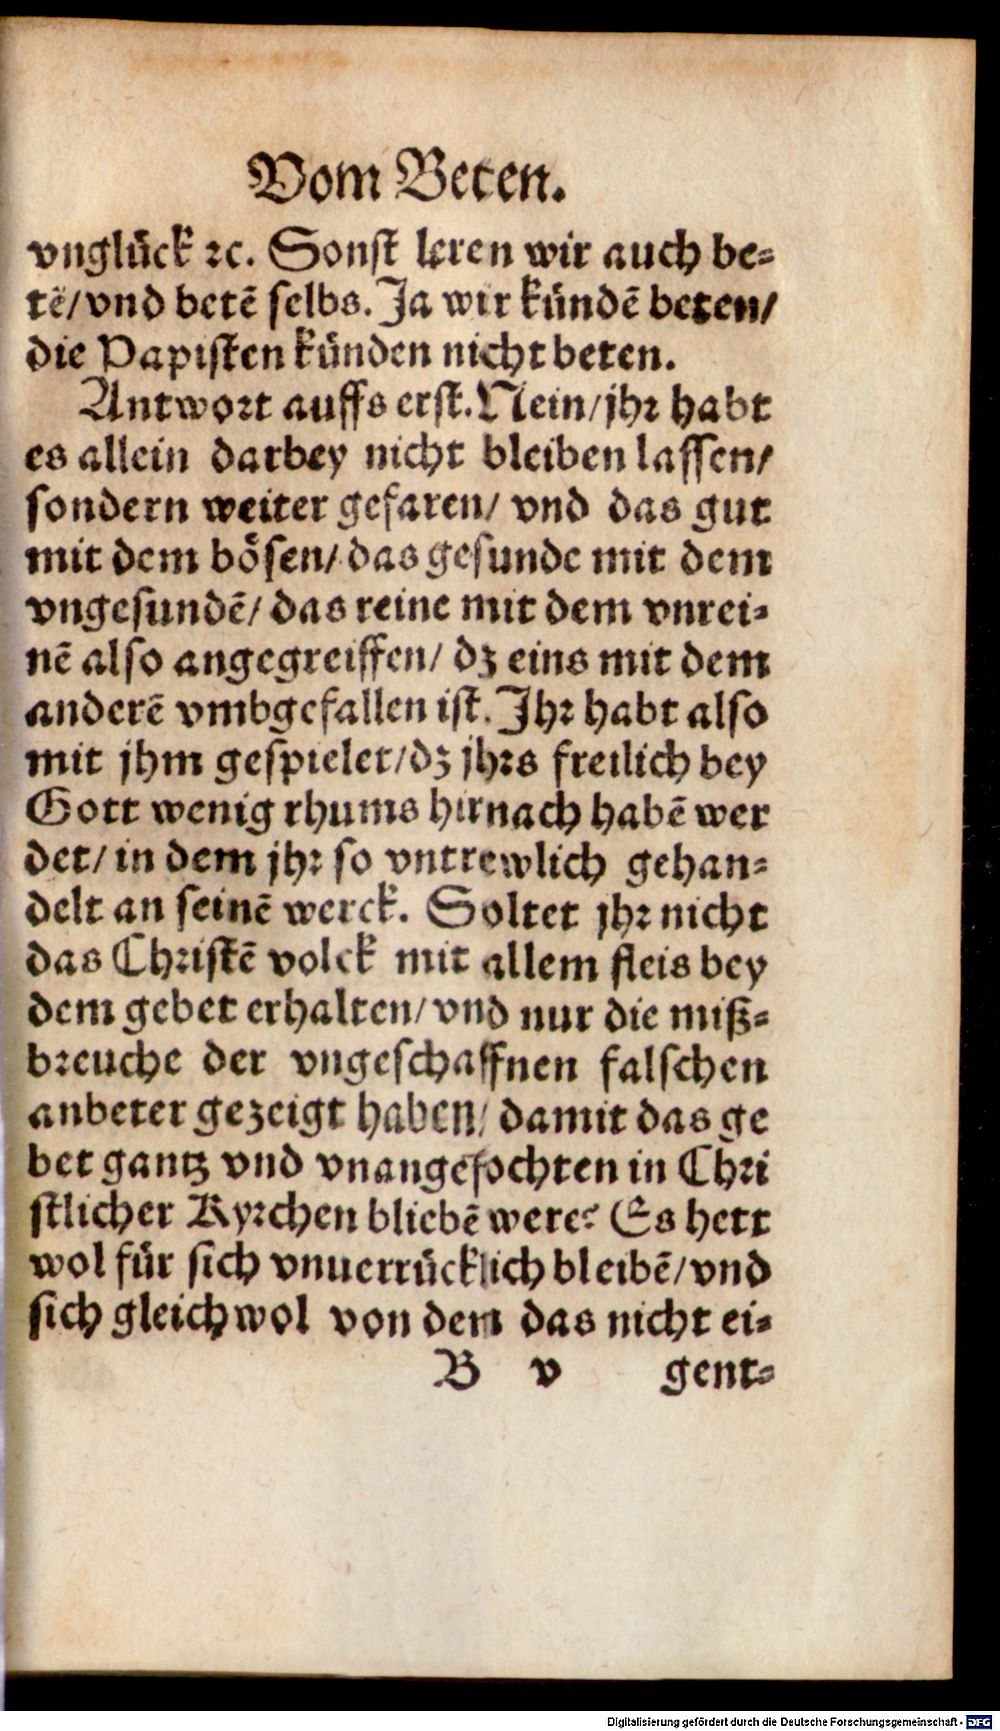 Vom Beten.
vnglück ꝛc. Sonst leren wir auch be⸗
tē/ vnd betē selbs. Ja wir kündē beten/
die Papisten künden nicht beten.
Antwort auffs erst. Nein/ jhr habt
es allein darbey nicht bleiben lassen/
sondern weiter gefaren/ vnd das gut
mit dem bösen/ das gesunde mit dem
vngesundē/ das reine mit dem vnrei⸗
nē also angegreiffen/ dz eins mit dem
anderē vmbgefallen ist. Jhr habt also
mit jhm gespielet/ dz jhrs freilich bey
Gott wenig rhums hirnach habē wer
det/ in dem jhr so vntrewlich gehan⸗
delt an seinē werck. Soltet jhr nicht
das Christē volck mit allem fleis bey
dem gebet erhalten/ vnd nur die miß⸗
breuche der vngeschaffnen falschen
anbeter gezeigt haben/ damit das ge
bet gantz vnd vnangefochten in Chri
stlicher Kyrchen bliebē were? Es hett
wol für sich vnuerrücklich bleibē/ vnd
sich gleichwol von dem das nicht ei⸗
B v gent⸗
Digitalisierung gefördert durch die Deutsche Forschungsgemeinschaft - DFG